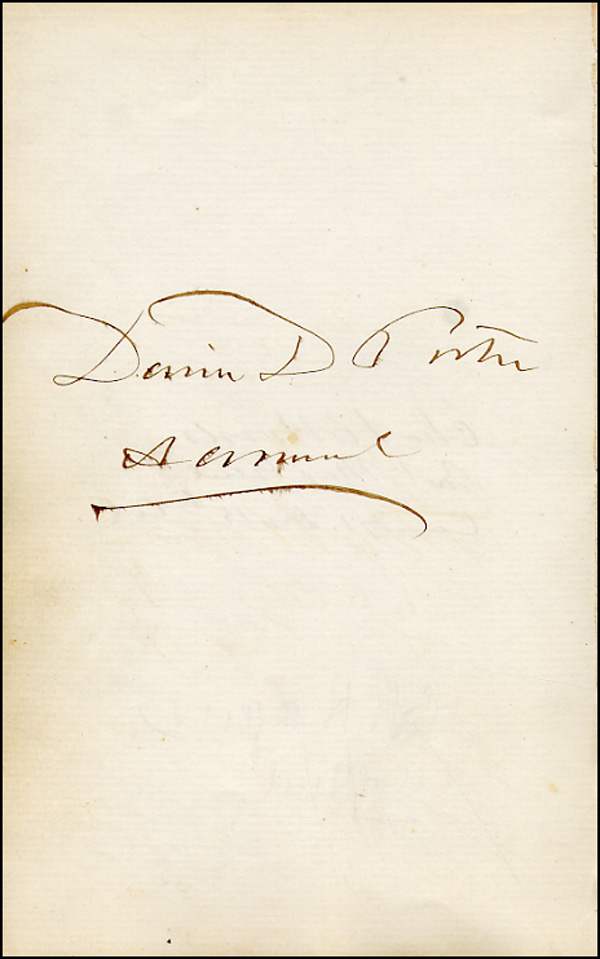 David D Porter
Admiral